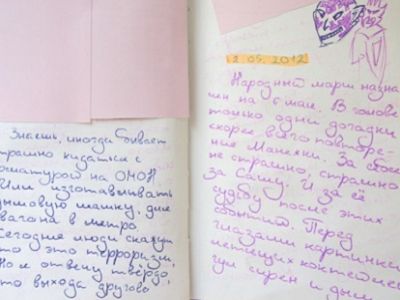 Знаешь, иногда бывает
страшно кидаться с
арматурой на ОМОН
Или изготавливать
дымовую шашку, для
вагона в метро
Сегодня люди скажут
что это терроризм,
Но я отвечу твёрдо,
что выхода другого
2 05. 2012
Народный марш назна
чен на 6 мая. В голове
только одни догадки
скорее всего повторе-
ние Манежки. За себя
не страшно, страшно
за Сашу. И за её
судьбу после этих
событий. Перед
глазами картинки
летящих коктейлей
гул сирен и дым